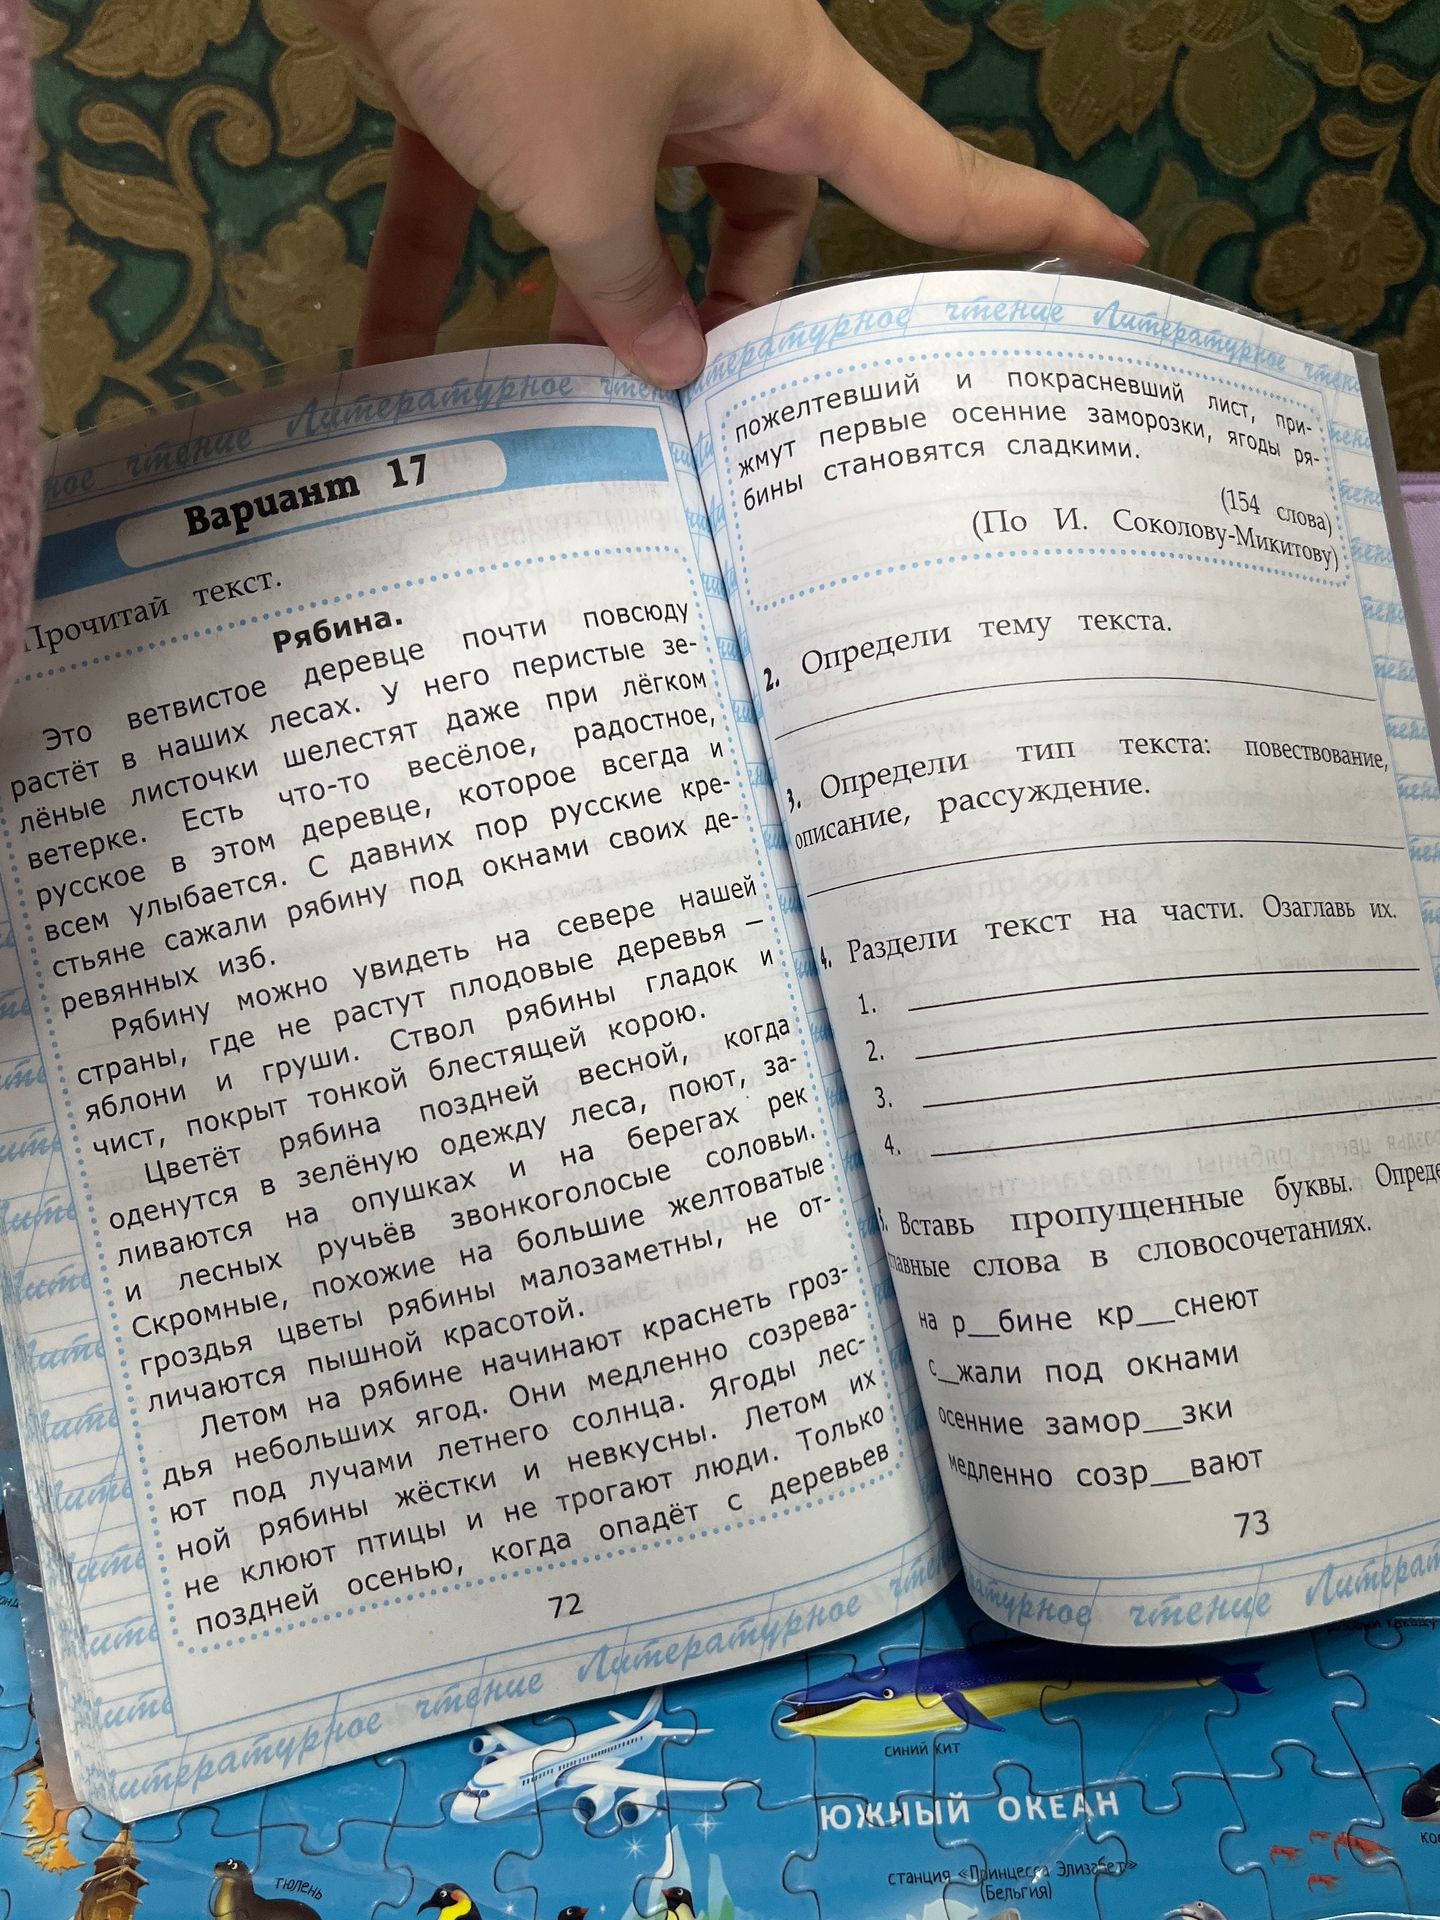 Литературное чтение
Вариант 17
Прочитай текст.
Рябина.
Это ветвистое деревце почти повсюду
растёт в наших лесах. У него перистые зе-
лёные листочки шелестят даже при лёгком
ветерке. Есть что-то весёлое, радостное,
русское в этом деревце, которое всегда и
всем улыбается. С давних пор русские кре-
стьяне сажали рябину под окнами своих де-
ревянных изб.
Рябину можно увидеть на севере нашей
страны, где не растут плодовые деревья –
яблони и груши. Ствол рябины гладок и
чист, покрыт тонкой блестящей корою.
Цветёт рябина поздней весной, когда
оденутся в зелёную одежду леса, поют, за-
ливаются на опушках и на берегах рек
и лесных ручьёв звонкоголосые соловьи.
Скромные, похожие на большие желтоватые
гроздья цветы рябины малозаметны, не от-
личаются пышной красотой.
Летом на рябине начинают краснеть гроз-
дья небольших ягод. Они медленно созрева-
ют под лучами летнего солнца. Ягоды лес-
ной рябины жёстки и невкусны. Летом их
не клюют птицы и не трогают люди. Только
поздней осенью, когда опадёт с деревьев
72
Литературное чтение
Литературное чтение Литературное
пожелтевший и покрасневший лист, при-
жмут первые осенние заморозки, ягоды ря-
бины становятся сладкими.
(154 слова)
(По И. Соколову-Микитову)
2. Определи тему текста.
3. Определи тип текста: повествование,
описание, рассуждение.
4. Раздели текст на части. Озаглавь их.
1.
2.
3.
4.
Вставь пропущенные буквы. Опреде
главные слова в словосочетаниях.
на р__бине кр__снеют
с__жали под окнами
осенние замор__зки
медленно созр__вают
73
чтение
синий кит
ЮЖНЫЙ ОКЕАН
станция «Принцесса Элизабет»
(Бельгия)
тюлень